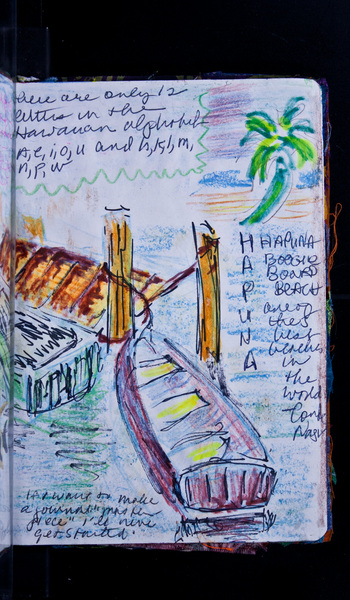 there are only 12
letters in the
Hawaiian alphabet
A, e, i, o, u and h, k, l, m,
n, p, w
HAPUNA
HAPUNA
BOOGIE
BOARD
BEACH
one of
the
best
beaches
in
the
world
to make
a journal "master
piece" I'll never
get started.